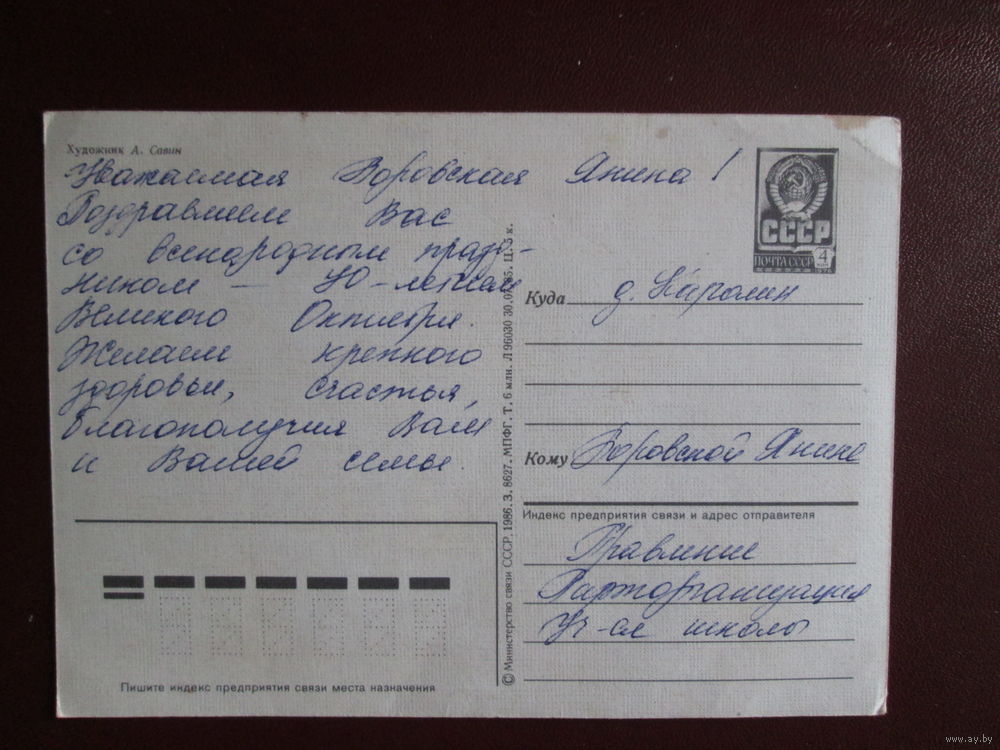 Художник А. Савин
Уважаемая Воровская Янина!
Поздравляем Вас
со всенародным празд-
ником — 70-летием
Великого Октября.
Желаем крепкого
здоровья, счастья,
благополучия Вам
и Вашей семье.
Пишите индекс предприятия связи места назначения
© Министерство связи СССР. 1986. З. 8627. МПФГ. Т. 6 млн. Л 96030 30.07.85. Ц. 5 к.
СССР
ПОЧТА СССР 4
1976
Куда д.
Кому Воровской Янине
Индекс предприятия связи и адрес отправителя
Правление
Парторганизация
школы
www.ay.by